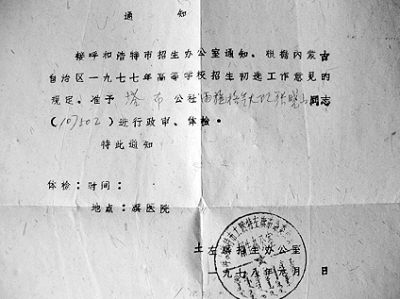 通 知
接呼和浩特市招生办公室通知。根据内蒙古
自治区一九七七年高等学校招生初选工作意见的
规定。准予 塔布 公社 同志
(107502)进行政审、体检。
特此通知
体检:时间:
地点:旗医院
土左旗招生办公室
一九七 年 月 日